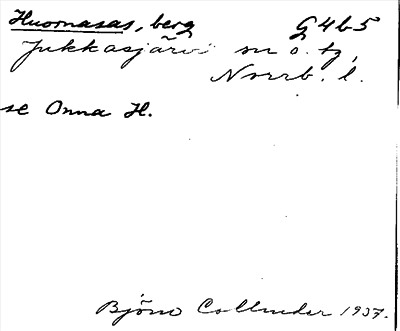 Huornasas, berg G4b5
Jukkasjärvi sn o. tg,
Norrb. l.
se Onna H.
Björn Collinder 1937.